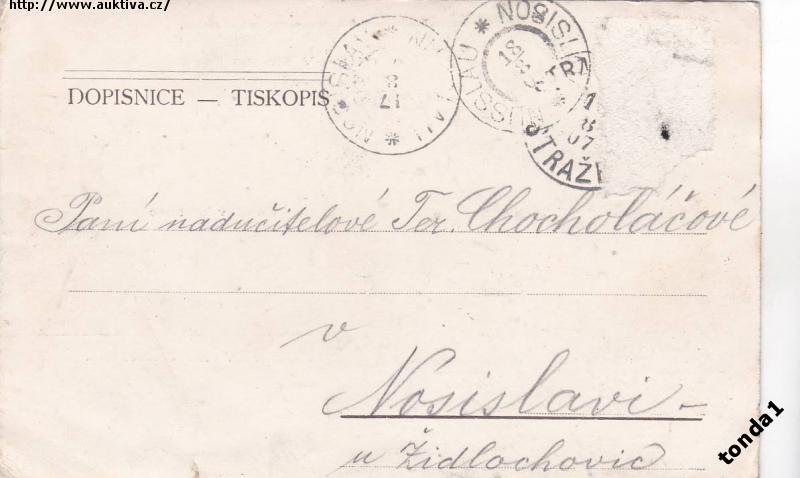 http://www.auktiva.cz/
NOSISLAV * NUSSLAU *
18
17
8
07
STRAŽ
DOPISNICE — TISKOPIS
Paní nadučitelové Ter. Chocholáčové
v
Nosislavi -
u Židlochovic
tonda1